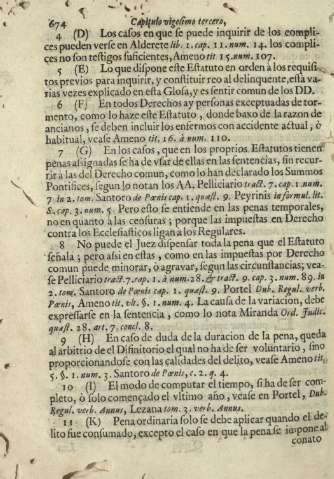 674 Capitulo vigesimo tercero,
4 (D) Los casos en que se puede inquirir de los compli-
ces pueden verse en Alderete lib. 1. cap. 11. num. 14. los compli-
ces no son testigos suficientes, Ameno tit 15. num. 107.
5 (E) Lo que dispone este Estatuto en orden à los requisi-
tos previos para inquirir, y constituir reo al delinquente, està va-
rias vezes explicado en esta Glosa, y es sentir comun de los DD.
6 (F) En todos Derechos ay personas exceptuadas de tor-
mento, como lo haze este Estatuto, donde baxo de la razon de
ancianos, se deben incluir los enfermos con accidente actual, ò
habitual, vease Ameno tit. 16. à num. 110.
7 (G) En los casos, que en los proprios Estatutos tienen
penas assignadas se ha de vsar de ellas en las sentencias, sin recur-
rir à las del Derecho comun, como lo han declarado los Summos
Pontifices, segun lo notan los AA. Pelliciario tract. 7. cap. 1. num.
7 in 2. tom. Santoro de Pœnis cap. 1. quæst. 9. Peyrinis in formul. lit.
S. cap. 3. num. 5. Pero esto se entiende en las penas temporales,
no en quanto à las censuras; porque las impuestas en Derecho
contra los Eclesiasticos ligan à los Regulares.
8 No puede el Juez dispensar toda la pena que el Estatuto
señala; pero assi en estas, como en las impuestas por Derecho
comun puede minorar, ò agravar, segun las circunstancias; vea-
se Pelliciario tract. 7. cap. 1. à num. 28. & tract. 9. cap. 3. num. 89. in
2. tom. Santoro de Pœnis cap. 1. quæst. 9. Portel Dub. Regul. verb.
Pœnis, Ameno tit. vlt. §. 1. num. 4. La causa de la variacion, debe
expressarse en la sentencia, como lo nota Miranda Ord. Judic.
quæst. 28. art. 7. concl. 8.
9 (H) En caso de duda de la duracion de la pena, queda
al arbitrio de el Difinitorio el qual no ha de ser voluntario, sino
proporcionandose con las calidades del delito, vease Ameno tit.
5. §. 1. num. 3. Santoro de Pœnis, c. 2. q. 4.
10 (I) El modo de computar el tiempo, si ha de ser com-
pleto, ò solo començado el vltimo año, vease en Portel, Dub.
Regul. verb. Annus, Lezana tom. 3. verb. Annus.
11 (K) Pena ordinaria solo se debe aplicar quando el de-
lito fue consumado, excepto el caso en que la pena se impone al
conato